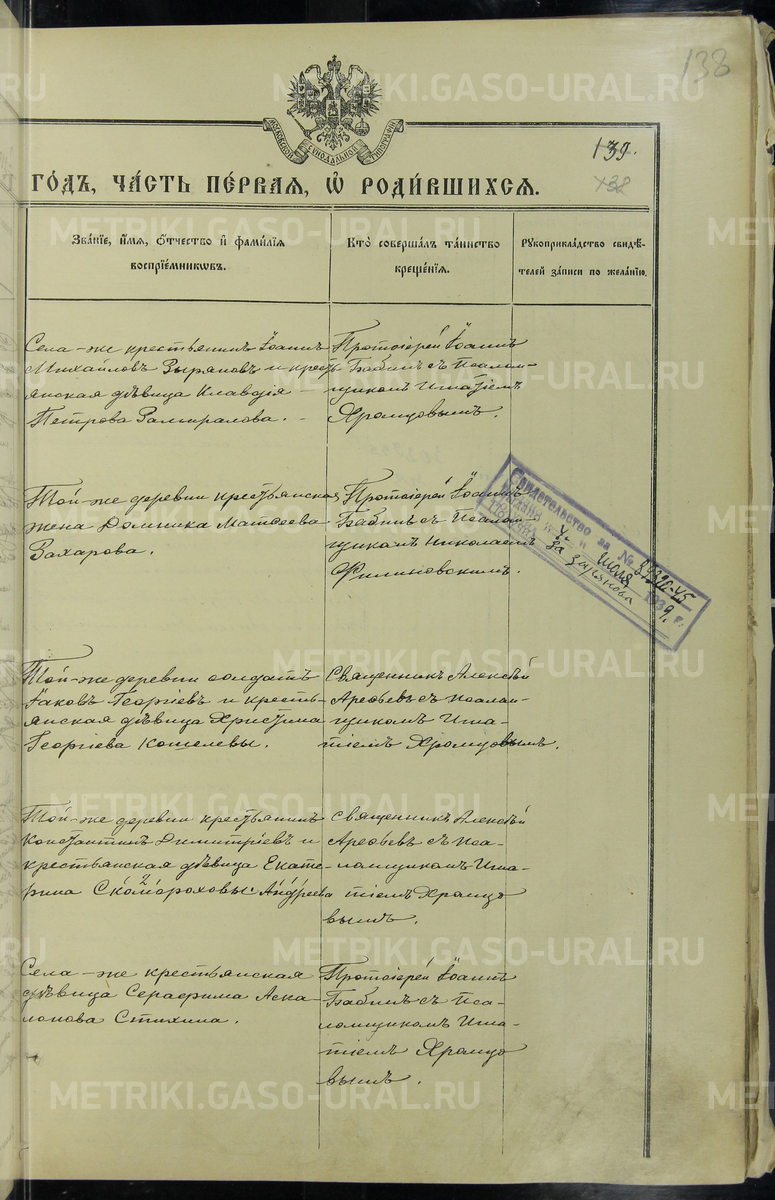 138
139.
138
МОСКОВСКОЙ СѴНОДАЛЬНОЙ ТИПОГРАФІИ
ГО́ДЪ, ЧА́СТЬ ПЕ́РВАЯ, Ѡ РОДИ́ВШИХСЯ.
Зва́нїе, и́мя, о́тчество и҆ фами́лїя
воспрїе́мникѡвъ.
Кто̀ соверша́лъ та́инство
креще́нїя.
Рꙋкоприкла́дство свидѣ́-
телей за́писи по жела́нїю.
Села-же крестьянинъ Іоаннъ
Михайловъ Зыряновъ и кресть-
янская дѣвица Клавдія
Петрова Замиралова.
Протоіерей Іоаннъ
Бабинъ съ Псалом-
щикомъ Игнатіемъ
Храмцовымъ.
Той-же деревни крестьянская
жена Домника Матѳеева
Захарова.
Протоіерей Іоаннъ
Бабинъ съ Псалом-
щикомъ Николаемъ
Филиновскимъ.
Свидетельство за №
Выдано " 4 " июля 1939 г.
За Зырянова
Той-же деревни солдатъ
Іаковъ Георгіевъ и кресть-
янская дѣвица Христина
Георгіева Кошелевы.
Священникъ Алексѣй
Арефьевъ съ псалом-
щикомъ Игна-
тіемъ Храмцовымъ.
Той-же деревни крестьянинъ
Константинъ Димитріевъ и
крестьянская дѣвица Екате-
рина Скоморохов
Андреева
Священникъ Алексѣй
Арефьевъ съ Пса-
ломщикомъ Игна-
тіемъ Храмцо
вымъ.
Села-же крестьянская
дѣвица Серафима Аска-
лонова Стихина.
Протоіерей Іоаннъ
Бабинъ съ Пса-
ломщикомъ Игна-
тіемъ Храмцо
вымъ.
METRIKI.GASO-URAL.RU